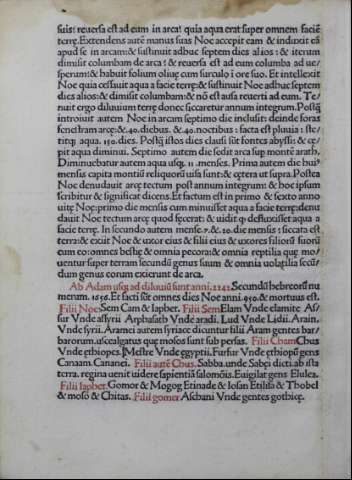 suis: reuersa est ad eum in arca: quia aqua erat super omnem faciē
terrę. Extendens autē manus suas Noe accepit eam & induxit eā
apud se in arcam: & sustinuit adhuc septem dies alios: & iterum
dimisit columbam de arca: & reuersa est ad eum columba ad ue/
sperum: & habuit folium oliuę cum surculo i ore suo. Et intellexit
Noe quia cessauit aqua a facie terrę: & sustinuit Noe adhuc septem
dies alios: & dimisit columbam: & nō est ausa reuerti ad eum. Te/
nuit ergo diluuium terrę donec siccaretur annum integrum. Postq̄
introiuit autem Noe in arcam septimo die inclusit: deinde foras
fenestram arcę: &. 40. diebus. & .40. noctibus: facta est pluuia: ste/
titq; aqua. 150. dies. Postq̄ istos dies clausi sūt fontes abyssi: & cę/
pit aqua diminui. Septimo autem die sedit arca sup montē arath.
Diminuebatur autem aqua usq; 11. menses. Prima autem die huiᵒ
mensis capita montiū reliquorū uisa sunt: & cętera ut supra. Postea
Noe denudauit arcę tectum post annum integrum: & hoc ipsum
scribitur & significat dicens. Et factum est in primo & sexto anno
uitę Noę: primo die mensis cum minuisset aqua a facie terrę: denu
dauit Noe tectum arcę quod fecerat: & uidit q̄ defluxisset aqua a
facie terrę. In secundo autem mense. 7. &. 20. die mensis: siccata est
terra: & exiit Noe & uxor eius & filii eius & uxores filiorū suorū
cum eo: omnes bestię & omnia pecora: & omnia reptilia quę mo/
uentur super terram secundū genus suum & omnia uolatilia secū/
dum genus eorum exierunt de arca.
Ab Adam usq; ad diluuiū sunt anni. 2242. Secundū hebreorū nu
merum. 1656. Et facti sūt omnes dies Noe anni. 950. & mortuus est.
Filii Noe: Sem Cam & Iaphet. Filii Sem Elam Vnde elamite As/
sur Vnde assyrii Arphasath Vnde aradi. Lud Vnde Lidii. Aram.
Vnde syrii. Aramei autem syriace dicuntur filii Aram gentes bar/
barorum. uscelgatus que mosos sunt sub persas. Filii Cham Chus
Vnde ęthiopes. Mestre Vnde egyptii. Fursur Vnde ęthiopū gens
Canaam. Cananei. Filii autē Chus. Sabba. unde Sabęi dicti. ab ista
terra. regina uenit uidere sapientiā salomōis. Euigilat gens Elulea.
Filii Iaphet. Gomor & Mogog Etinade & Iosan Etilisa & Thobel
& mosō & Chitas. Filii gomer Aschani Vnde gentes gothicę.